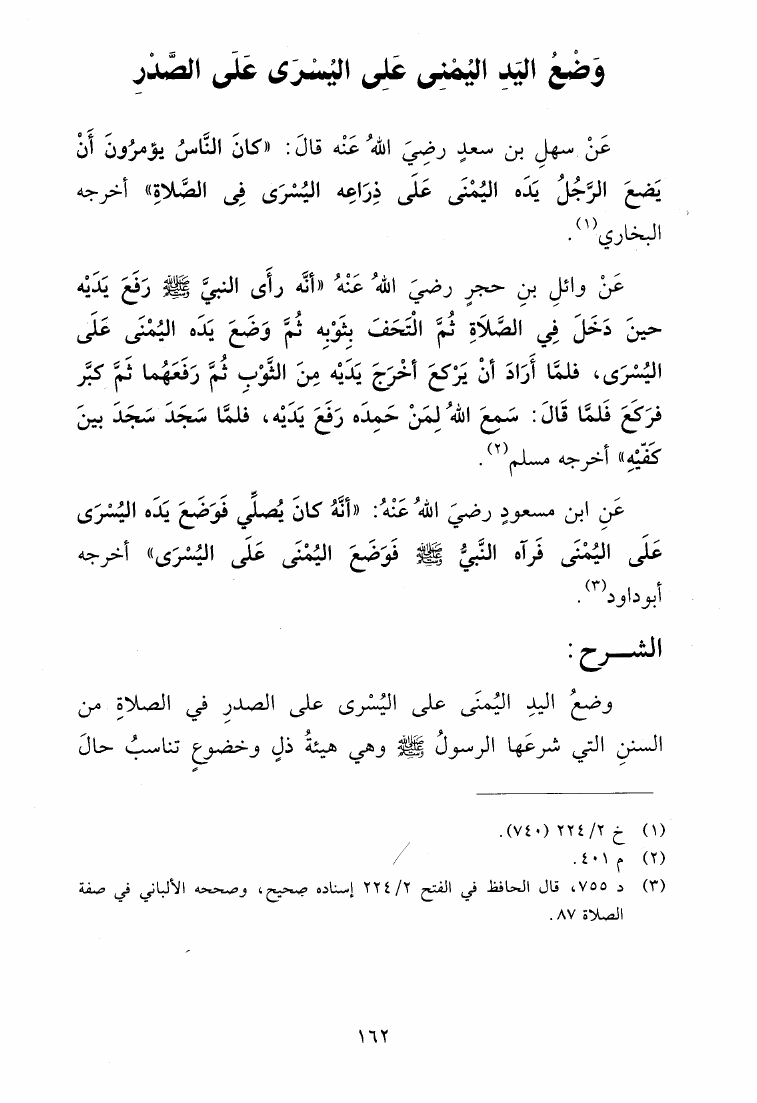 وَضْعُ اليَدِ اليُمْنِى عَلِى اليُسْرَى عَلَى الصَّدْرِ
عَنْ سهلِ بن سعدٍ رضِيَ اللهُ عَنْه قالَ: «كانَ النَّاسُ يؤمرُونَ أَنْ
يَضعَ الرَّجُلُ يَدَه اليُمْنَى عَلَى ذِرَاعِه اليُسْرَى فِى الصَّلاةِ» أخرجه
البخاري(١).
عَنْ وائلِ بنِ حجرٍ رضِيَ اللهُ عَنْهُ «أنَّه رأَى النبيَّ ﷺ رَفَعَ يَدَيْه
حينَ دَخَلَ فِي الصَّلَاةِ ثُمَّ الْتَحَفَ بِثَوْبِه ثُمَّ وَضَعَ يَدَه اليُمْنَى عَلَى
اليُسْرَى، فلمَّا أَرَادَ أنْ يَرْكعَ أخْرَجَ يَدَيْه مِنَ الثَّوْبِ ثُمَّ رَفَعَهُما ثمَّ كبَّر
فرَكَعَ فَلمَّا قَالَ: سَمِعَ اللهُ لِمَنْ حَمِدَه رَفَعَ يَدَيْه، فلمَّا سَجَدَ سَجَدَ بينَ
كَفَّيْهِ» أخرجه مسلم(٢).
عَنِ ابن مسعودٍ رضِيَ اللهُ عَنْهُ: «أنَّهُ كانَ يُصلِّي فَوَضَعَ يَدَه اليُسْرَى
عَلَى اليُمْنَى فَرآه النَّبيُّ ﷺ فَوَضَعَ اليُمْنَى عَلَى اليُسْرَى» أخرجه
أبوداود(٣).
الشـــرح:
وضعُ اليدِ اليُمنَى على اليُسْرى على الصدرِ في الصلاةِ من
السننِ التي شرعَها الرسولُ ﷺ وهي هيئةُ ذلٍ وخضوعٍ تناسبُ حالَ
(١) خ ٢/ ٢٢٤ (٧٤٠).
(٢) م ٤٠١.
(٣) د ٧٥٥، قال الحافظ في الفتح ٢/ ٢٢٤ إسناده صحيح، وصححه الألباني في صفة
الصلاة ٨٧.
١٦٢